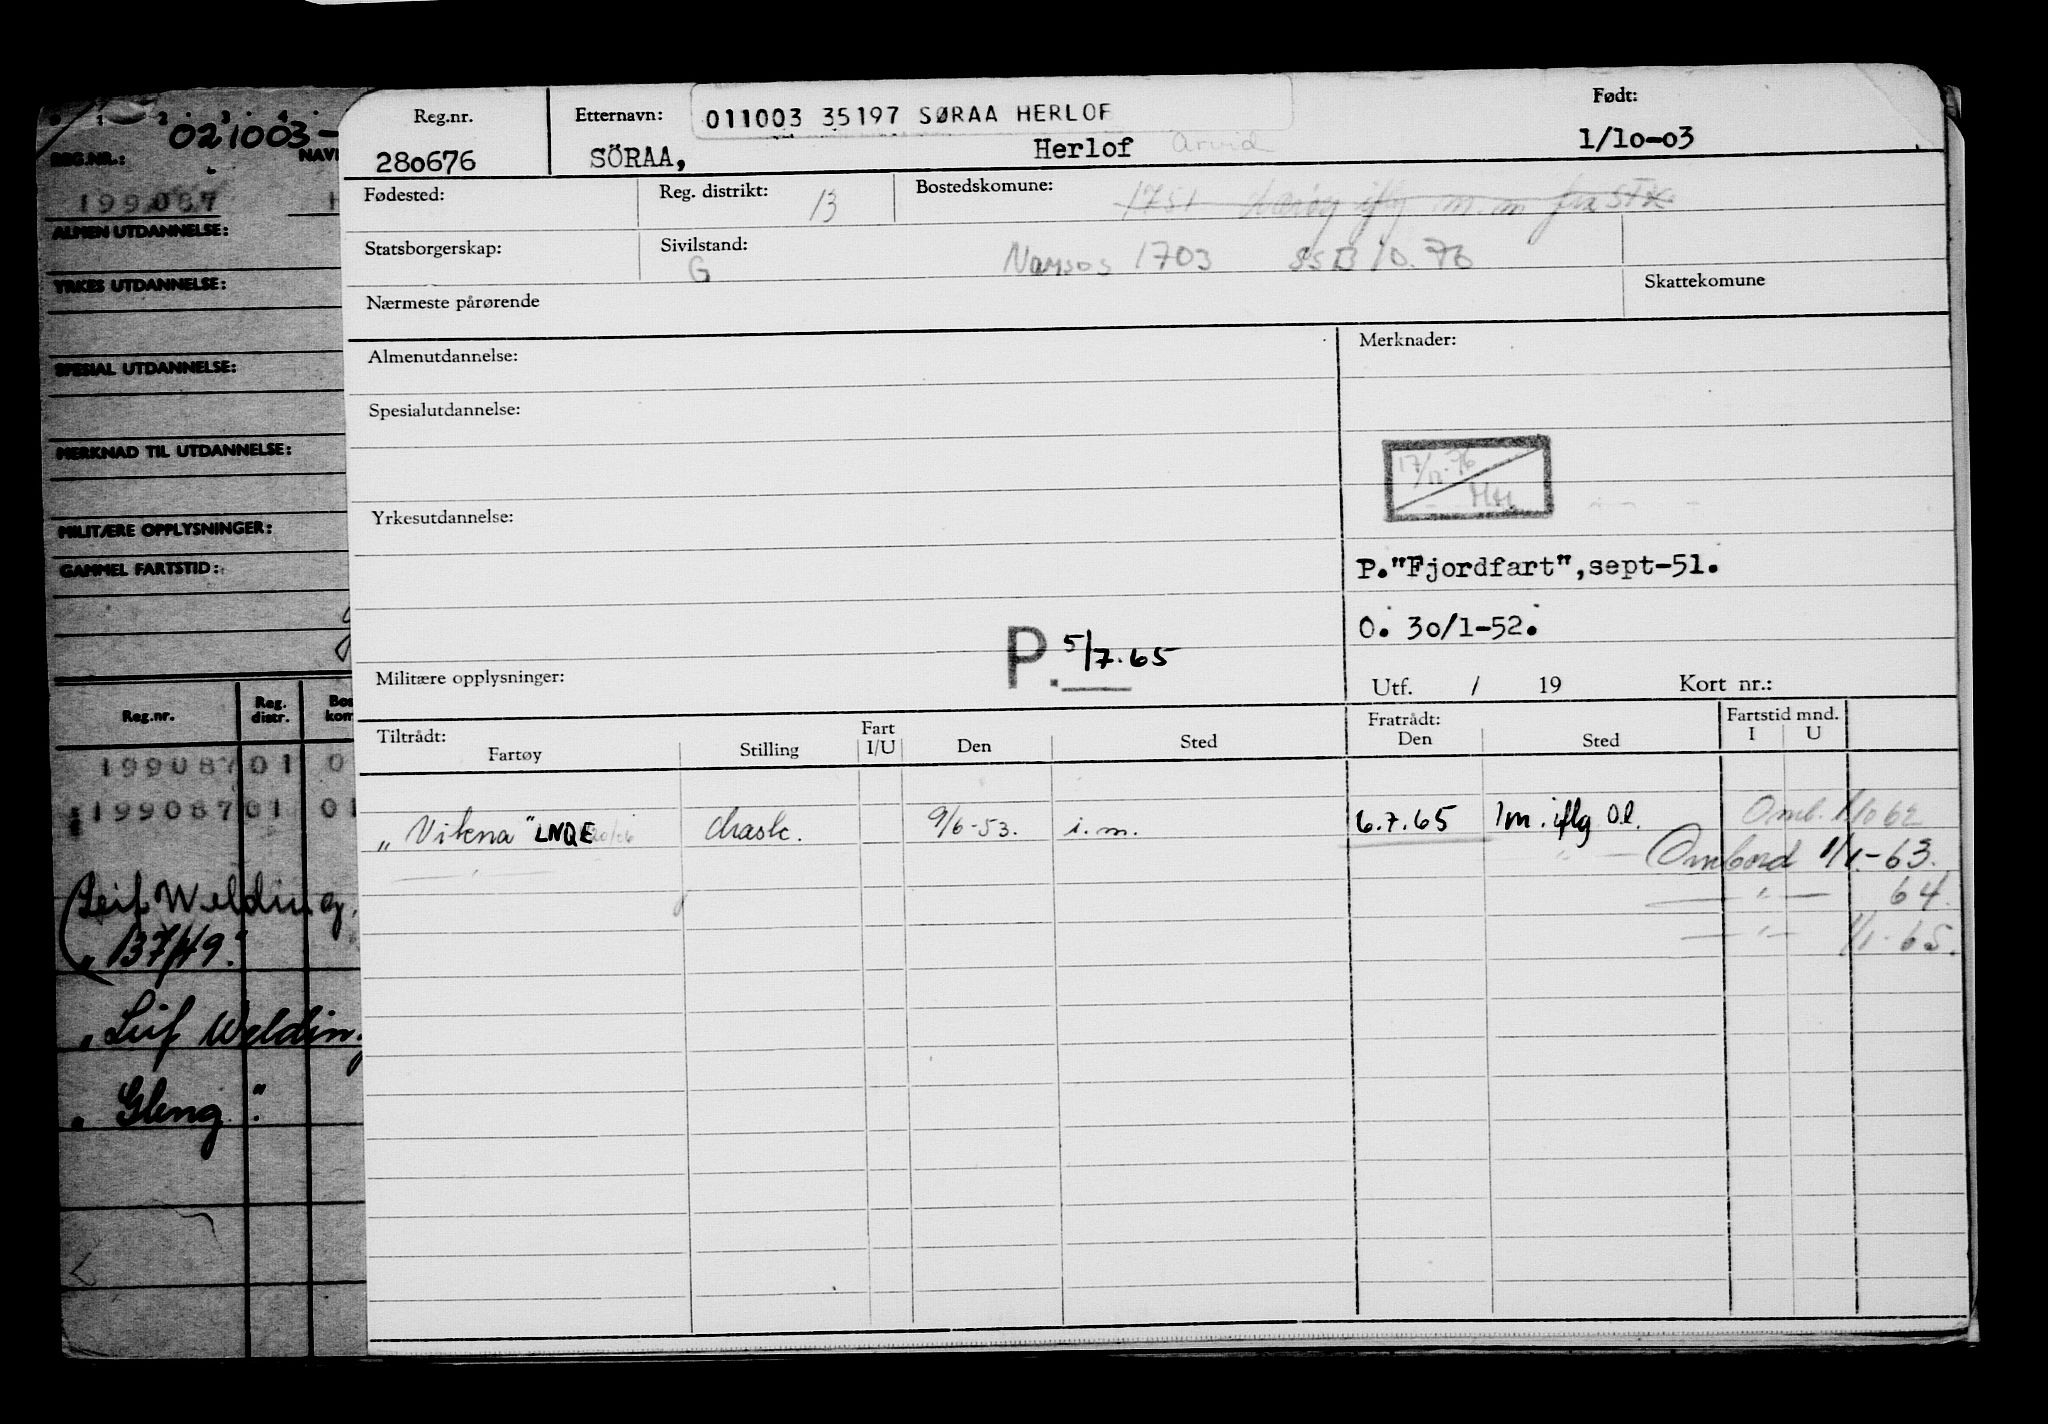 021003-
REG.NR.:
NAV
199087
ALMEN UTDANNELSE:
YRKES UTDANNELSE:
SPESIAL UTDANNELSE:
MERKNAD TIL UTDANNELSE:
MILITÆRE OPPLYSNINGER:
GAMMEL FARTSTID:
Reg.nr. Reg. distr. Bos kom
199087 01 0
199087 01 01
Leif Welding.
" 137/49."
" Leif Welding
" Gleng."
Reg.nr. Etternavn: 011003 35197 SØRAA HERLOF Født:
280676 SÖRAA, Herlof Arvid 1/10-03
Fødested: Reg. distrikt: 13 Bostedskomune: 1751 Nærøy iflg m.m fra STK
Statsborgerskap: Sivilstand: G Namsos 1703 SSB 10.76
Nærmeste pårørende Skattekomune
Almenutdannelse: Merknader:
Spesialutdannelse:
17/11.76
HH
Yrkesutdannelse:
P."Fjordfart",sept-51.
O. 30/1-52.
P. 5/7.65
Militære opplysninger: Utf. / 19 Kort nr.:
Tiltrådt: Fart Fratrådt: Fartstid mnd.
Fartøy Stilling I/U Den Sted Den Sted I U
"Vikna" LNQE 20/06 mask. 9/6-53. i.m. 6.7.65 Im. iflg Ol. Omb. 1/10 62
" — Ombord 1/1-63.
— " — 64.
— " — 1/1-65.